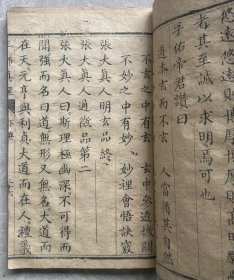 者其至誠以求明焉可也
孚佑帝君讚曰
道本玄而不玄 人當循其自然
之中有玄 玄中參透機關
不妙之中有妙 妙裡會悟訣竅
張大真人明玄品終
張大真人闡微品第二
張大真人曰斯理極幽深不可得而
聞強而名曰道無形又無名大道而
在天元亨與利貞大道而在人禮義